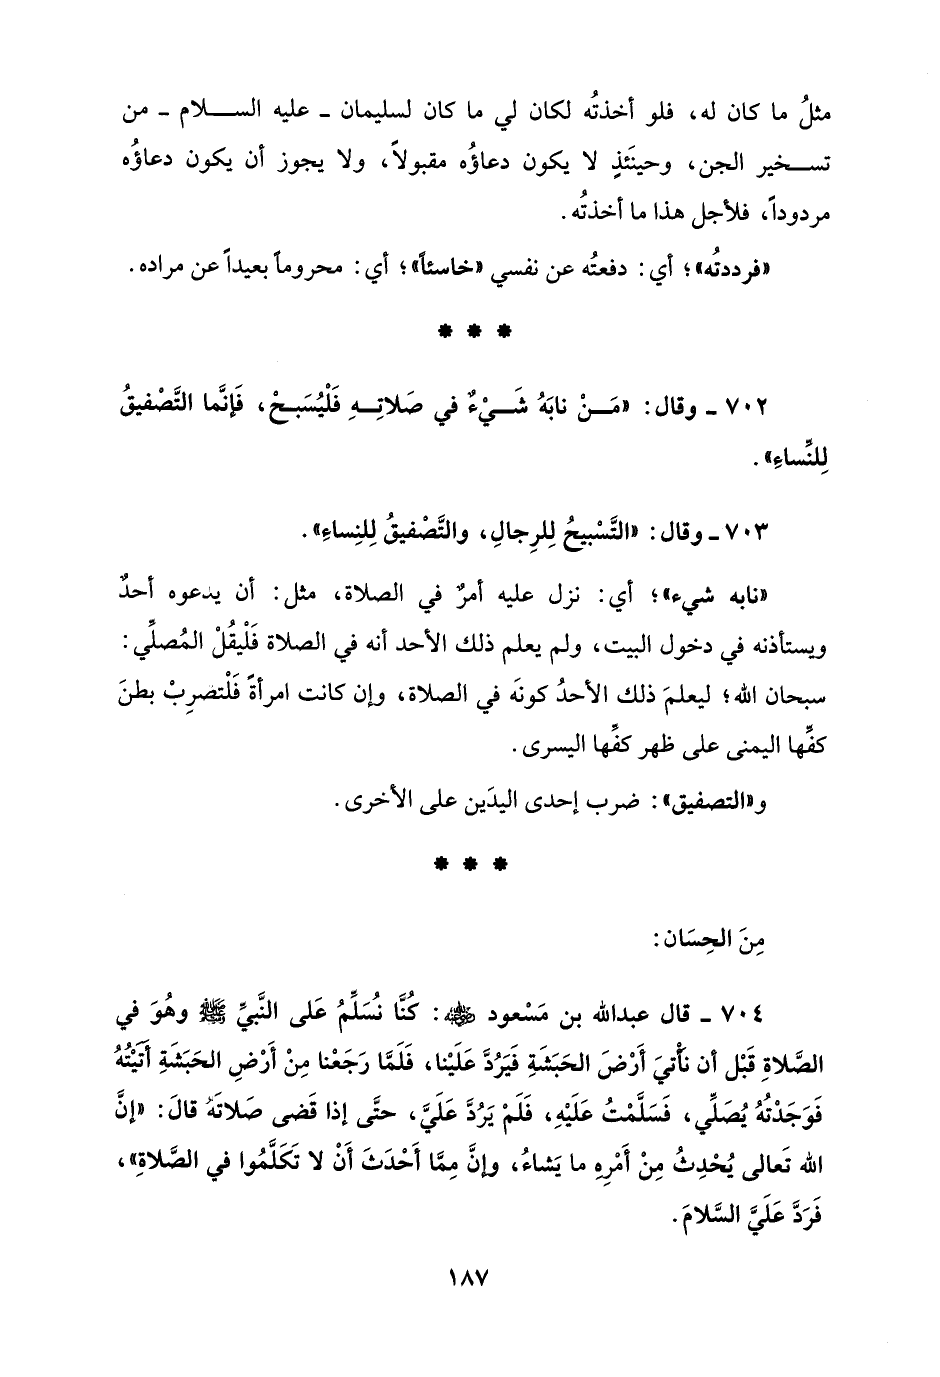 مثلُ ما كان له، فلو أخذتُه لكان لي ما كان لسليمان ـ عليه السلام ـ من
تسخير الجن، وحينَئذٍ لا يكون دعاؤُه مقبولاً، ولا يجوز أن يكون دعاؤُه
مردوداً، فلأجل هذا ما أخذتُه.
«فرددتُه»؛ أي: دفعتُه عن نفسي «خاسئاً»؛ أي: محروماً بعيداً عن مراده.
* * *
٧٠٢ ـ وقال: «مَنْ نابَهُ شَيْءٌ في صَلاتِهِ فَلْيُسَبحْ، فَإنَّما التَّصْفيقُ
لِلنِّساءِ».
٧٠٣ ـ وقال: «التَّسْبيحُ لِلرِجالِ، والتَّصْفيقُ لِلنِساءِ».
«نابه شيء»؛ أي: نزل عليه أمرٌ في الصلاة، مثل: أن يدعوه أحدٌ
ويستأذنه في دخول البيت، ولم يعلم ذلك الأحد أنه في الصلاة فَلْيقُلْ المُصلِّي:
سبحان الله؛ ليعلمَ ذلك الأحدُ كونَه في الصلاة، وإن كانت امرأةً فَلْتضرِبْ بطنَ
كفِّها اليمنى على ظهر كفِّها اليسرى.
و«التصفيق»: ضرب إحدى اليدَين على الأخرى.
* * *
مِنَ الحِسَان:
٧٠٤ ـ قال عبدالله بن مَسْعود ﵁: كُنَّا نُسَلِّمُ عَلى النَّبيِّ ﷺ وهُوَ في
الصَّلاةِ قَبْل أن نأْتيَ أَرْضَ الحَبَشَةِ فَيَرُدَّ عَلَيْنا، فَلَمَّا رَجَعْنا مِنْ أَرْضِ الحَبَشَةِ أَتَيْتُهُ
فَوَجَدْتُهُ يُصَلِّي، فَسَلَّمْتُ عَلَيْهِ، فَلَمْ يَرُدَّ عَلَيَّ، حتَّى إذا قَضى صَلاتَهُ قالَ: «إنَّ
الله تَعالى يُحْدِثُ مِنْ أَمْرِهِ ما يَشاءُ، وإنَّ مِمَّا أَحْدَثَ أَنْ لا تَكَلَّمُوا في الصَّلاةِ»،
فَرَدَّ عَلَيَّ السَّلامَ.
١٨٧